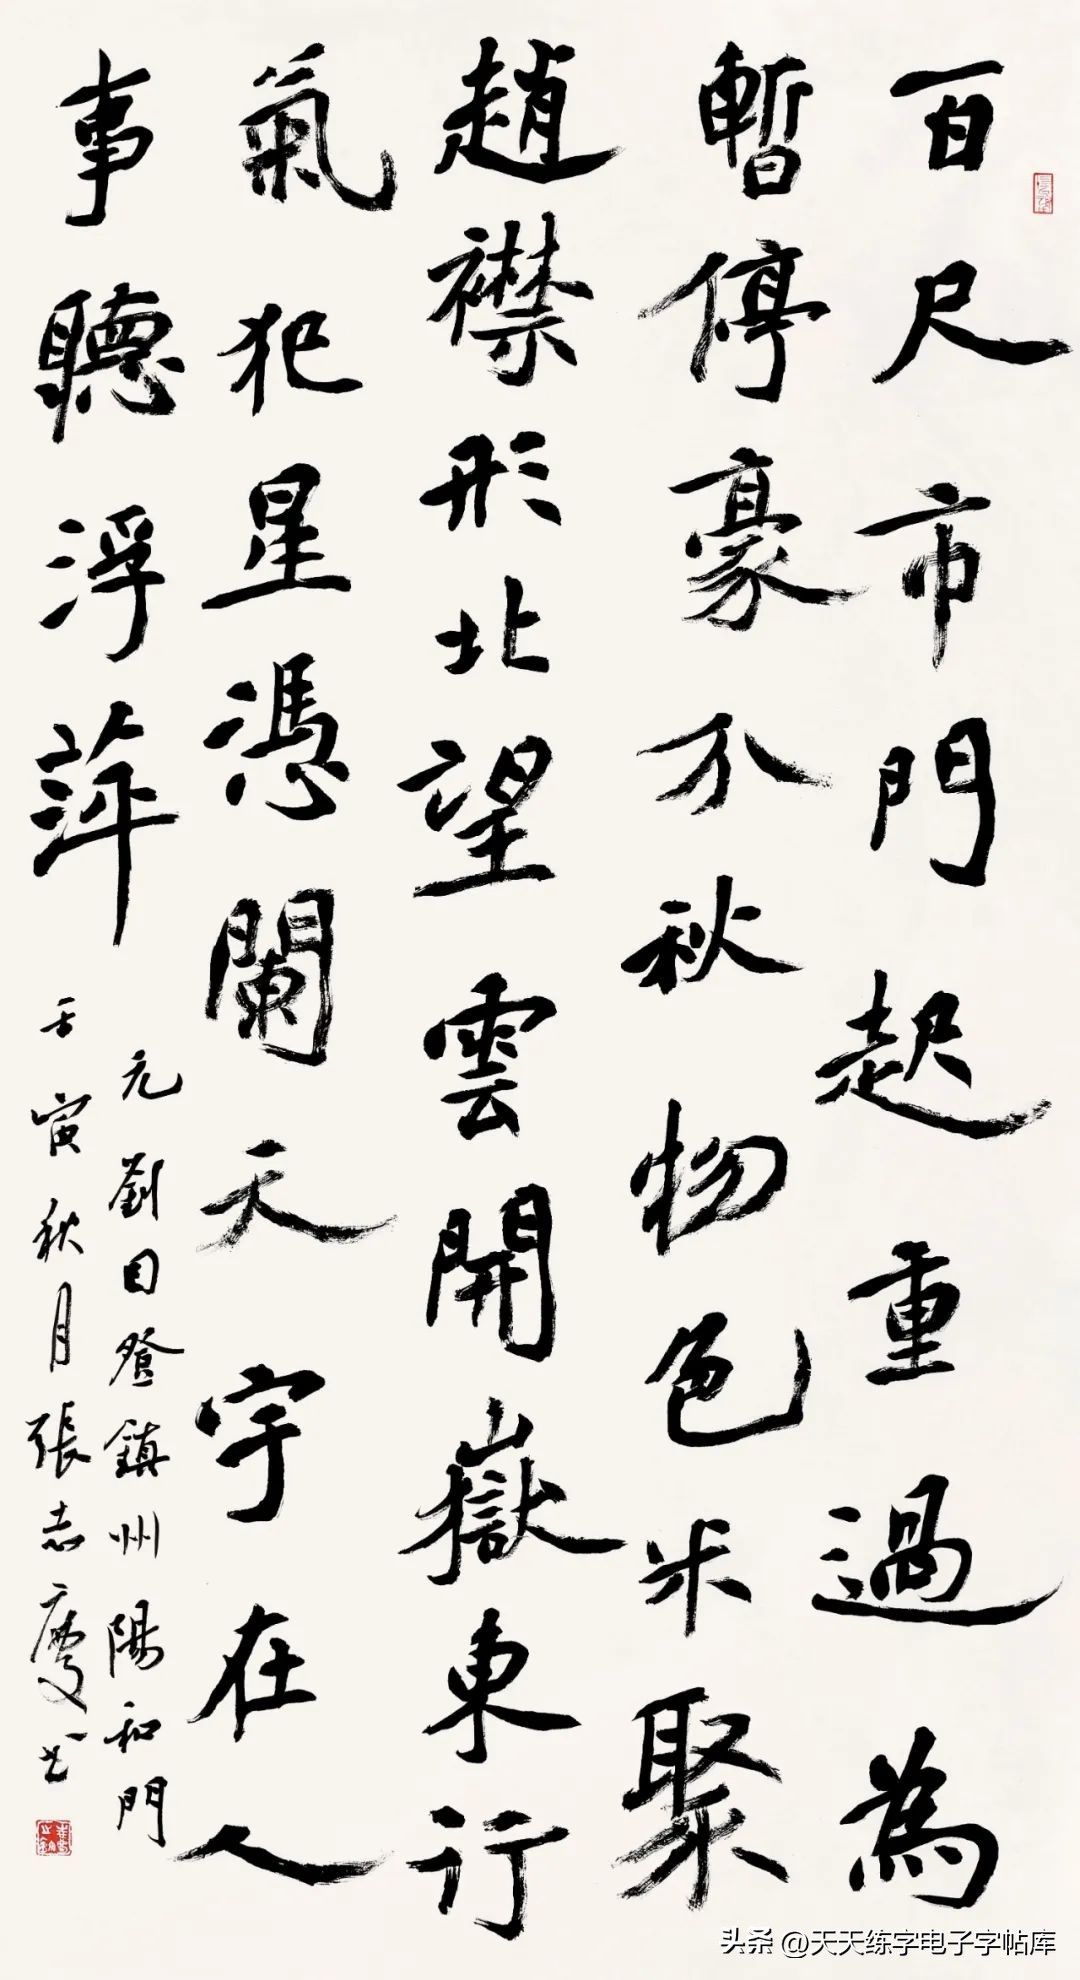 百尺市門起重過為
暫停豪分秋物色米聚
趙襟形北望雲開嶽東行
氣犯星馮闌天宇在人
事聽浮萍
元劉因登鎮州陽和門
壬寅秋月張志慶書
头条 @天天练字电子字帖库